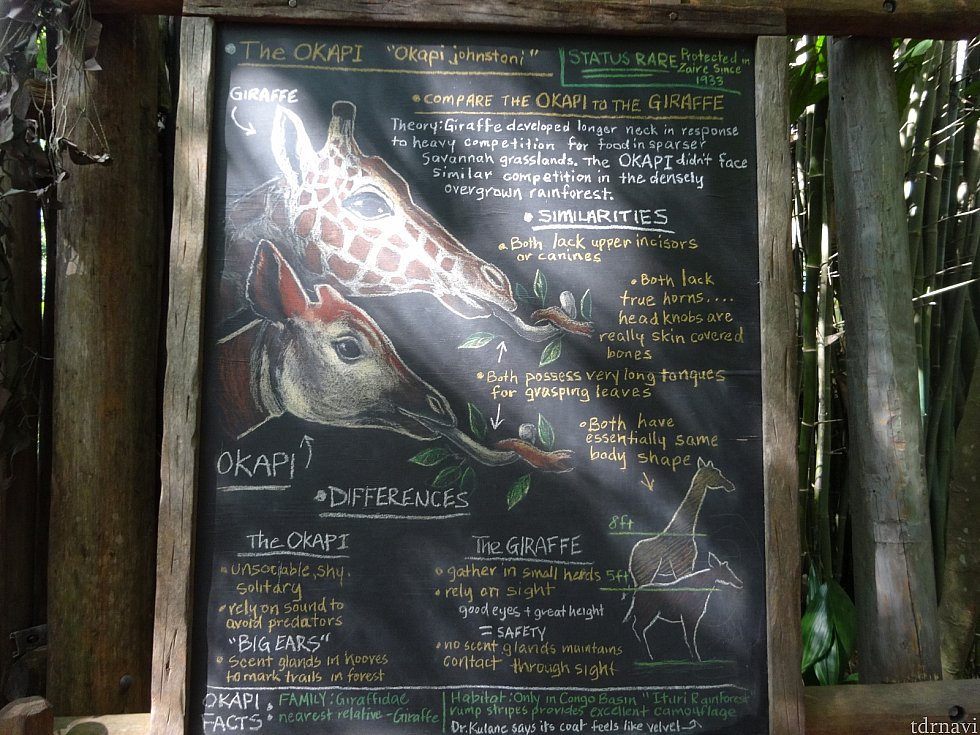 The OKAPI "Okapi johnstoni"
STATUS RARE Protected in
Zaire Since
1933
GIRAFFE
• COMPARE THE OKAPI TO THE GIRAFFE
Theory: Giraffe developed longer neck in response
to heavy competition for food in sparser
Savannah grasslands. The OKAPI didn't face
similar competition in the densely
overgrown rainforest.
• SIMILARITIES
• Both lack upper incisors
or canines
• Both lack
true horns....
head knobs are
really skin covered
bones
• Both possess very long tongues
for grasping leaves
• Both have
essentially same
body shape
OKAPI
• DIFFERENCES
The OKAPI
• unsociable, shy,
solitary
• rely on sound to
avoid predators
"BIG EARS"
• scent glands in hooves
to mark trails in forest
The GIRAFFE
• gather in small herds
• rely on sight
good eyes + great height
= SAFETY
• no scent glands maintains
contact through sight
8ft
5ft
OKAPI FACTS:
FAMILY: Giraffidae
nearest relative - Giraffe
Habitat: Only in Congo Basin "Ituri Rainforest
rump stripes provides excellent camouflage
Dr. Kulane says its coat feels like velvet
tdrnavi